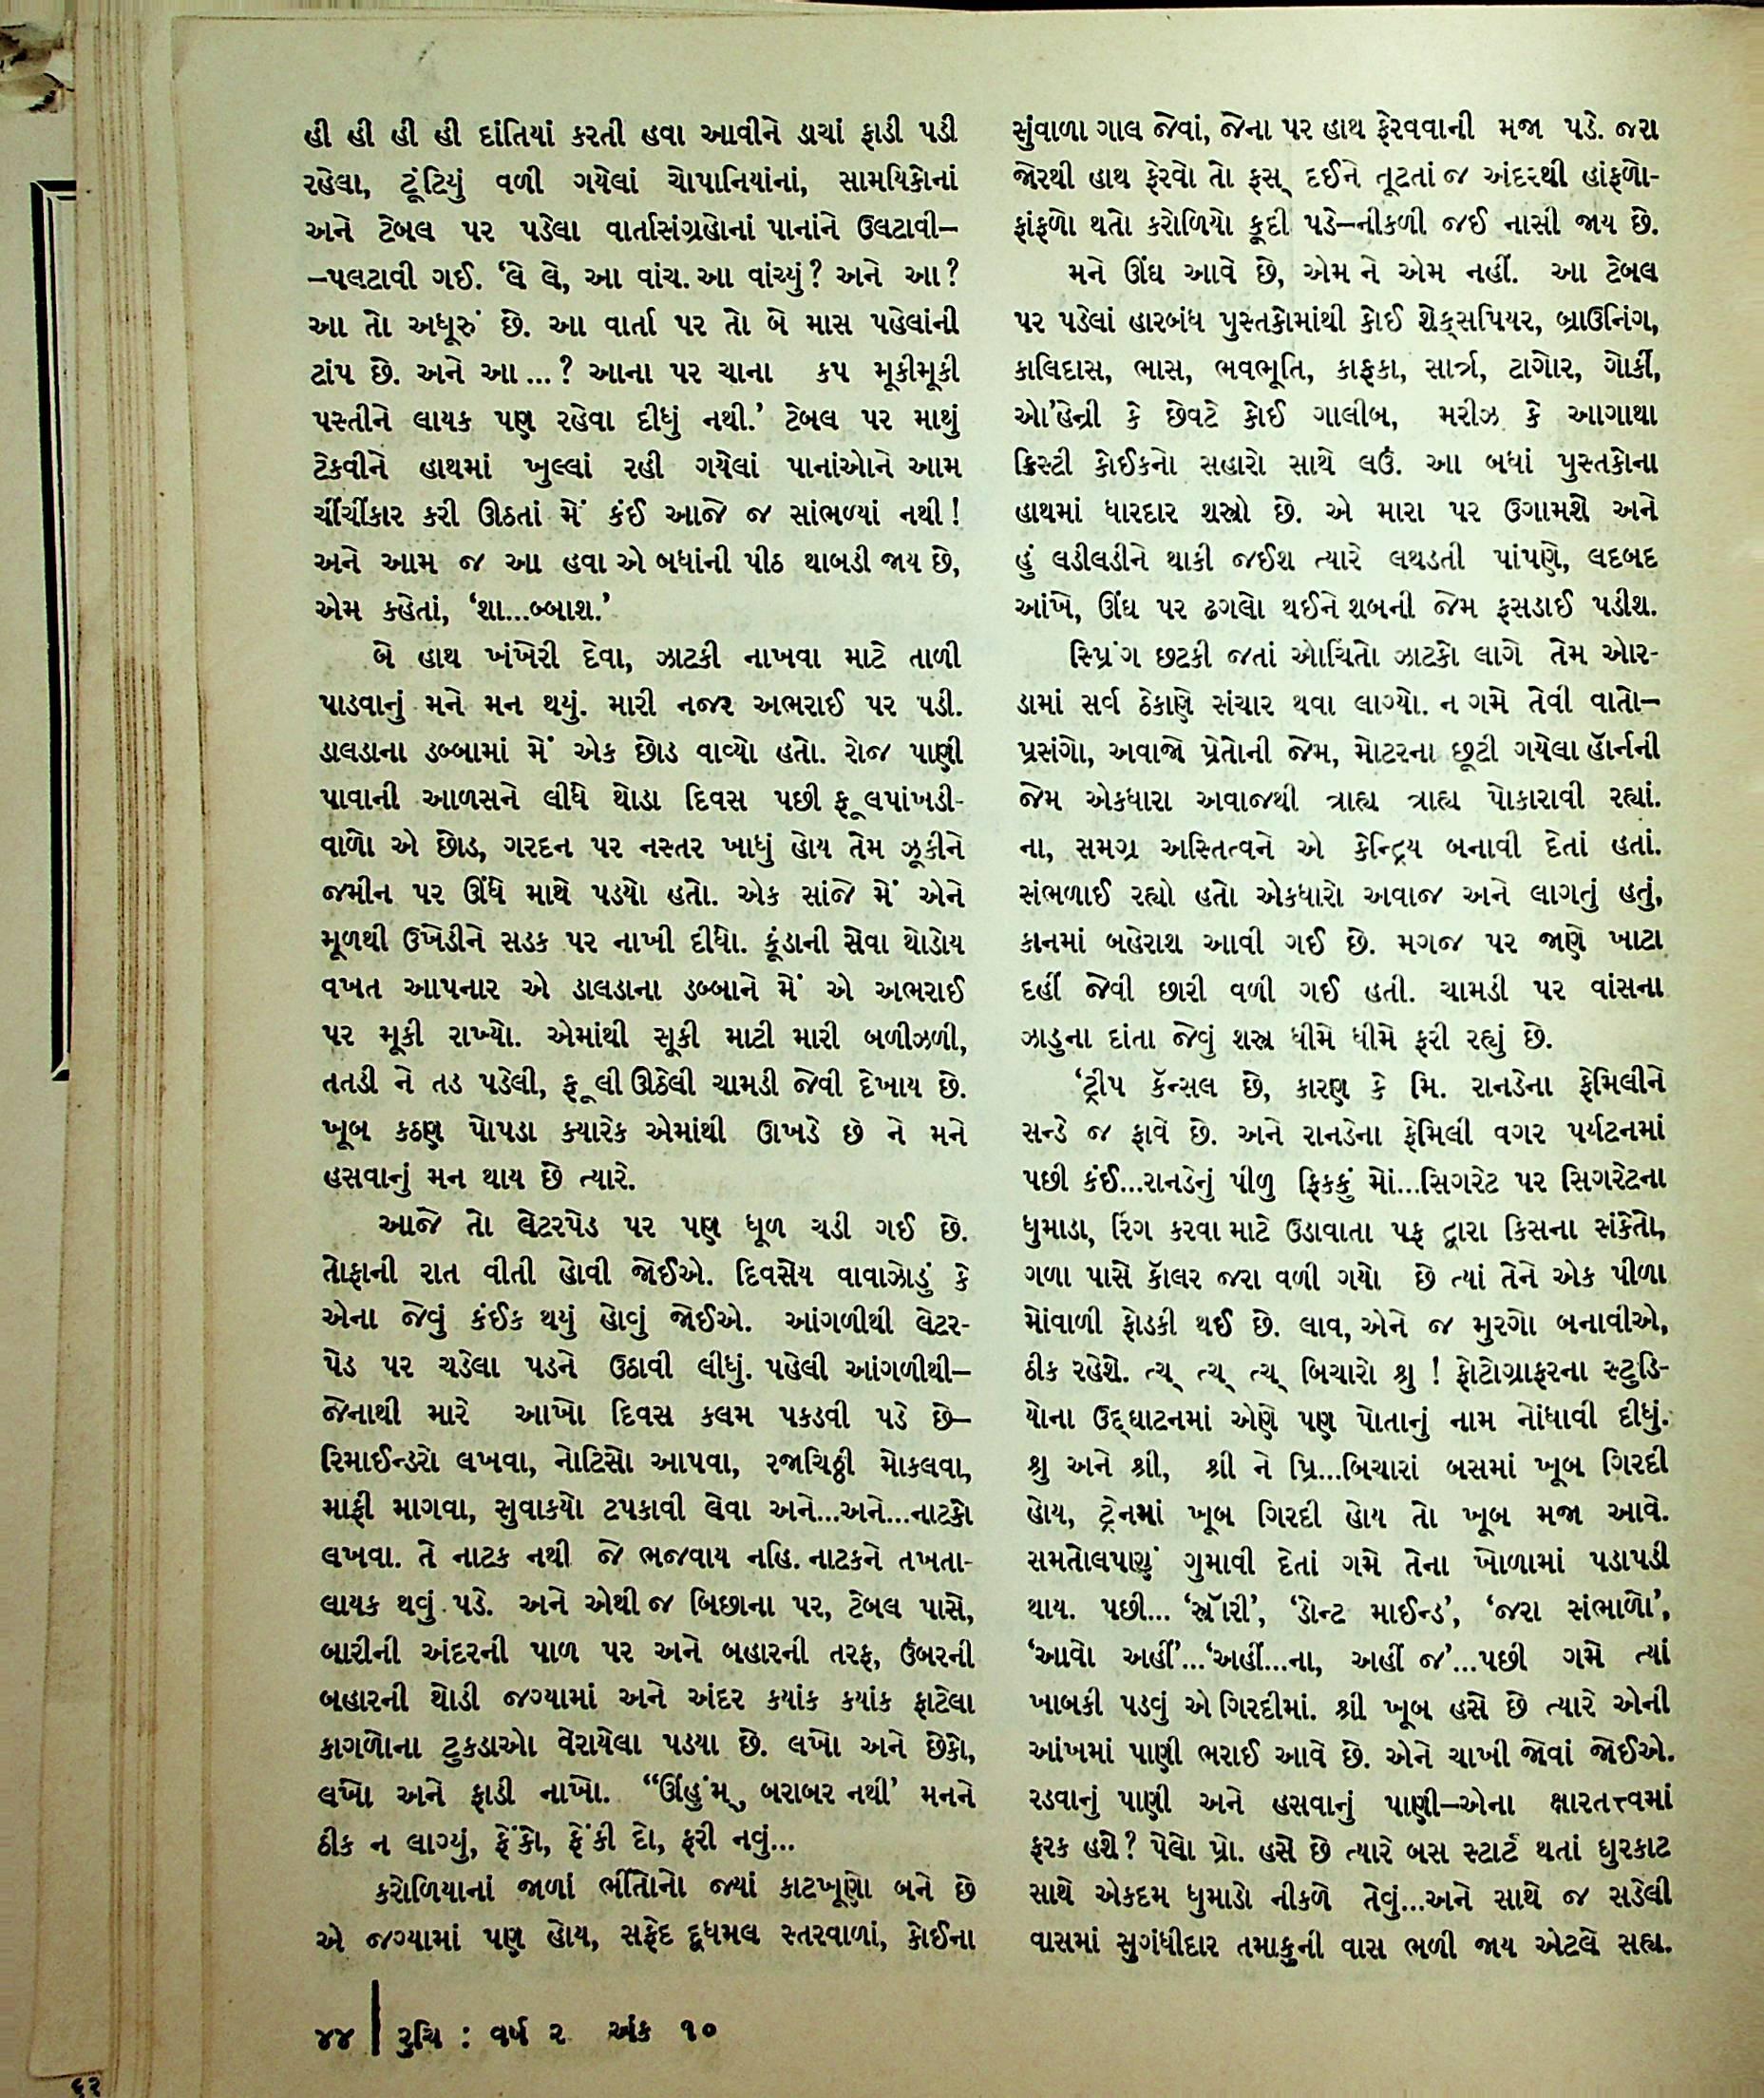 હી હી હી હી દાંતિયાં કરતી હવા આવીને ડાચાં ફાડી પડી
રહેલા, ટૂંટિયું વળી ગયેલાં ચોપાનિયાંનાં, સામયિકોનાં
અને ટેબલ પર પડેલા વાર્તાસંગ્રહોનાં પાનાંને ઉલટાવી–
–પલટાવી ગઈ. ‘લે લે, આ વાંચ. આ વાંચ્યું? અને આ?
આ તો અધૂરું છે. આ વાર્તા પર તો બે માસ પહેલાંની
ટાંપ છે. અને આ ...? આના પર ચાના કપ મૂકીમૂકી
પસ્તીને લાયક પણ રહેવા દીધું નથી.’ ટેબલ પર માથું
ટેકવીને હાથમાં ખુલ્લાં રહી ગયેલાં પાનાંઓને આમ
ચીંચીંકાર કરી ઊઠતાં મેં કંઈ આજે જ સાંભળ્યાં નથી!
અને આમ જ આ હવા એ બધાંની પીઠ થાબડી જાય છે,
એમ કહેતાં, ‘શા...બ્બાશ.’
બે હાથ ખંખેરી દેવા, ઝાટકી નાખવા માટે તાળી
પાડવાનું મને મન થયું. મારી નજર અભરાઈ પર પડી.
ડાલડાના ડબ્બામાં મેં એક છોડ વાવ્યો હતો. રોજ પાણી
પાવાની આળસને લીધે થોડા દિવસ પછી ફૂલપાંખડી-
વાળો એ છોડ, ગરદન પર નસ્તર ખાધું હોય તેમ ઝૂકીને
જમીન પર ઊંધે માથે પડયો હતો. એક સાંજે મેં એને
મૂળથી ઉખેડીને સડક પર નાખી દીધો. કૂંડાની સેવા થોડોય
વખત આપનાર એ ડાલડાના ડબ્બાને મેં એ અભરાઈ
પર મૂકી રાખ્યો. એમાંથી સૂકી માટી મારી બળીઝળી,
તતડી ને તડ પડેલી, ફૂલી ઊઠેલી ચામડી જેવી દેખાય છે.
ખૂબ કઠણ પોપડા ક્યારેક એમાંથી ઊખડે છે ને મને
હસવાનું મન થાય છે ત્યારે.
આજે તો લેટરપેડ પર પણ ધૂળ ચડી ગઈ છે.
તોફાની રાત વીતી હોવી જોઈએ. દિવસેય વાવાઝોડું કે
એના જેવું કંઈક થયું હોવું જોઈએ. આંગળીથી લેટર-
પેડ પર ચડેલા પડને ઉઠાવી લીધું. પહેલી આંગળીથી–
જેનાથી મારે આખો દિવસ કલમ પકડવી પડે છે–
રિમાઈન્ડરો લખવા, નોટિસો આપવા, રજાચિઠ્ઠી મોકલવા,
માફી માગવા, સુવાક્યો ટપકાવી લેવા અને...અને...નાટકો
લખવા. તે નાટક નથી જે ભજવાય નહિ. નાટકને તખતા-
લાયક થવું પડે. અને એથી જ બિછાના પર, ટેબલ પાસે,
બારીની અંદરની પાળ પર અને બહારની તરફ, ઉંબરની
બહારની થોડી જગ્યામાં અને અંદર કયાંક કયાંક ફાટેલા
કાગળોના ટુકડાઓ વેરાયેલા પડયા છે. લખો અને છેકો,
લખો અને ફાડી નાખો. “ઊંહુંમ્, બરાબર નથી’ મનને
ઠીક ન લાગ્યું, ફેંકો, ફેંકી દો, ફરી નવું...
કરોળિયાનાં જાળાં ભીંતોનો જ્યાં કાટખૂણો બને છે
એ જગ્યામાં પણ હોય, સફેદ દૂધમલ સ્તરવાળાં, કોઈના
સુંવાળા ગાલ જેવાં, જેના પર હાથ ફેરવવાની મજા પડે. જરા
જોરથી હાથ ફેરવો તો ફસ્ દઈને તૂટતાં જ અંદરથી હાંફળો-
ફાંફળો થતો કરોળિયો કૂદી પડે–નીકળી જઈ નાસી જાય છે.
મને ઊંઘ આવે છે, એમ ને એમ નહીં. આ ટેબલ
પર પડેલાં હારબંધ પુસ્તકોમાંથી કોઈ શેક્સપિયર, બ્રાઉનિંગ,
કાલિદાસ, ભાસ, ભવભૂતિ, કાફકા, સાર્ત્ર, ટાગોર, ગોર્કી,
ઓ’હેન્રી કે છેવટે કોઈ ગાલીબ, મરીઝ કે આગાથા
ક્રિસ્ટી કોઈકનો સહારો સાથે લઉં. આ બધાં પુસ્તકોના
હાથમાં ધારદાર શસ્ત્રો છે. એ મારા પર ઉગામશે અને
હું લડીલડીને થાકી જઈશ ત્યારે લથડતી પાંપણે, લદબદ
આંખે, ઊંઘ પર ઢગલો થઈને શબની જેમ ફસડાઈ પડીશ.
સ્પ્રિંગ છટકી જતાં ઓચિંતો ઝાટકો લાગે તેમ ઓર-
ડામાં સર્વ ઠેકાણે સંચાર થવા લાગ્યો. ન ગમે તેવી વાતો–
પ્રસંગો, અવાજો પ્રેતોની જેમ, મોટરના છૂટી ગયેલા હૉર્નની
જેમ એકધારા અવાજથી ત્રાહ્ય ત્રાહ્ય પોકારાવી રહ્યાં.
ના, સમગ્ર અસ્તિત્વને એ કેન્દ્રિય બનાવી દેતાં હતાં.
સંભળાઈ રહ્યો હતો એકધારો અવાજ અને લાગતું હતું,
કાનમાં બહેરાશ આવી ગઈ છે. મગજ પર જાણે ખાટા
દહીં જેવી છારી વળી ગઈ હતી. ચામડી પર વાંસના
ઝાડુના દાંતા જેવું શસ્ત્ર ધીમે ધીમે ફરી રહ્યું છે.
‘ટ્રીપ કૅન્સલ છે, કારણ કે મિ. રાનડેના ફેમિલીને
સન્ડે જ ફાવે છે. અને રાનડેના ફેમિલી વગર પર્યટનમાં
પછી કંઈ...રાનડેનું પીળુ ફિકકું મોં...સિગરેટ પર સિગરેટના
ધુમાડા, રિંગ કરવા માટે ઉડાવાતા પફ દ્વારા કિસના સંકેતો,
ગળા પાસે કૉલર જરા વળી ગયો છે ત્યાં તેને એક પીળા
મોંવાળી ફોડકી થઈ છે. લાવ, એને જ મુરગો બનાવીએ,
ઠીક રહેશે. ત્ચ્ ત્ચ્ ત્ચ્ બિચારો શ્રુ ! ફોટોગ્રાફરના સ્ટુડિ-
યોના ઉદ્ઘાટનમાં એણે પણ પોતાનું નામ નોંધાવી દીધું.
શ્રુ અને શ્રી, શ્રી ને પ્રિ...બિચારાં બસમાં ખૂબ ગિરદી
હોય, ટ્રેનમાં ખૂબ ગિરદી હોય તો ખૂબ મજા આવે.
સમતોલપણું ગુમાવી દેતાં ગમે તેના ખોળામાં પડાપડી
થાય. પછી... ‘સૉરી’, ‘ડોન્ટ માઈન્ડ’, ‘જરા સંભાળો’,
‘આવો અહીં’...‘અહીં...ના, અહીં જ’...પછી ગમે ત્યાં
ખાબકી પડવું એ ગિરદીમાં. શ્રી ખૂબ હસે છે ત્યારે એની
આંખમાં પાણી ભરાઈ આવે છે. એને ચાખી જોવાં જોઈએ.
રડવાનું પાણી અને હસવાનું પાણી–એના ક્ષારતત્ત્વમાં
ફરક હશે? પેલો પ્રો. હસે છે ત્યારે બસ સ્ટાર્ટ થતાં ઘુરકાટ
સાથે એકદમ ધુમાડો નીકળે તેવું...અને સાથે જ સડેલી
વાસમાં સુગંધીદાર તમાકુની વાસ ભળી જાય એટલે સહ્ય.
૪૪ | રુચિ : વર્ષ ૨ અંક ૧૦
૬૨